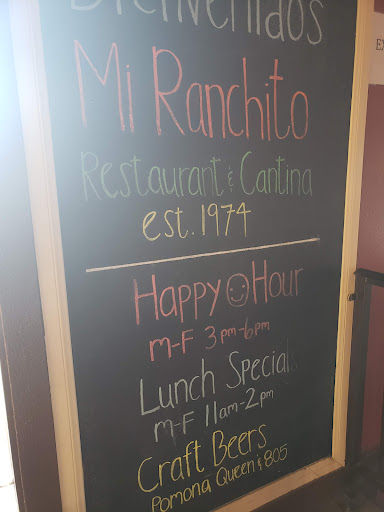 Bienvenidos
Mi Ranchito
Restaurant & Cantina
est. 1974
Happy Hour
M-F 3pm-6pm
Lunch Specials
M-F 11am-2pm
Craft Beers
Pomona Queen & 805